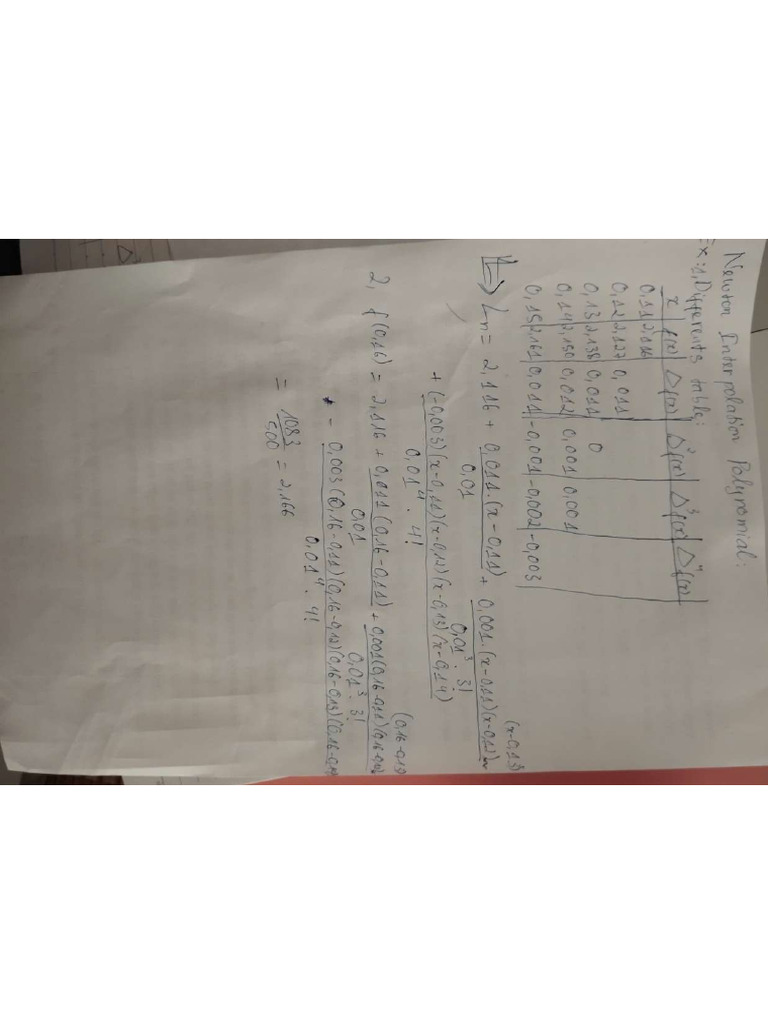 Newton Interpolation Polynomial:
Ex:1, Differents table:
x | f(x) | Δf(x) | Δ²f(x) | Δ³f(x) | Δ⁴f(x)
0,11 2,116
0,12 2,127 0,011
0,13 2,138 0,011 0
0,14 2,150 0,012 0,001 0,001
0,15 2,161 0,011 -0,001 -0,002 -0,003
=> Ln = 2,116 + 0,011.(x-0,11) / 0,01 + 0,001.(x-0,11)(x-0,12)(x-0,13) / 0,01³ . 3!
+ (-0,003)(x-0,11)(x-0,12)(x-0,13)(x-0,14) / 0,01⁴ . 4!
2, f(0,16) = 2,116 + 0,011(0,16-0,11) / 0,01 + 0,001(0,16-0,11)(0,16-0,12)(0,16-0,13) / 0,01³ . 3!
- 0,003(0,16-0,11)(0,16-0,12)(0,16-0,13)(0,16-0,14) / 0,01⁴ . 4!
= 1083 / 500 = 2,166